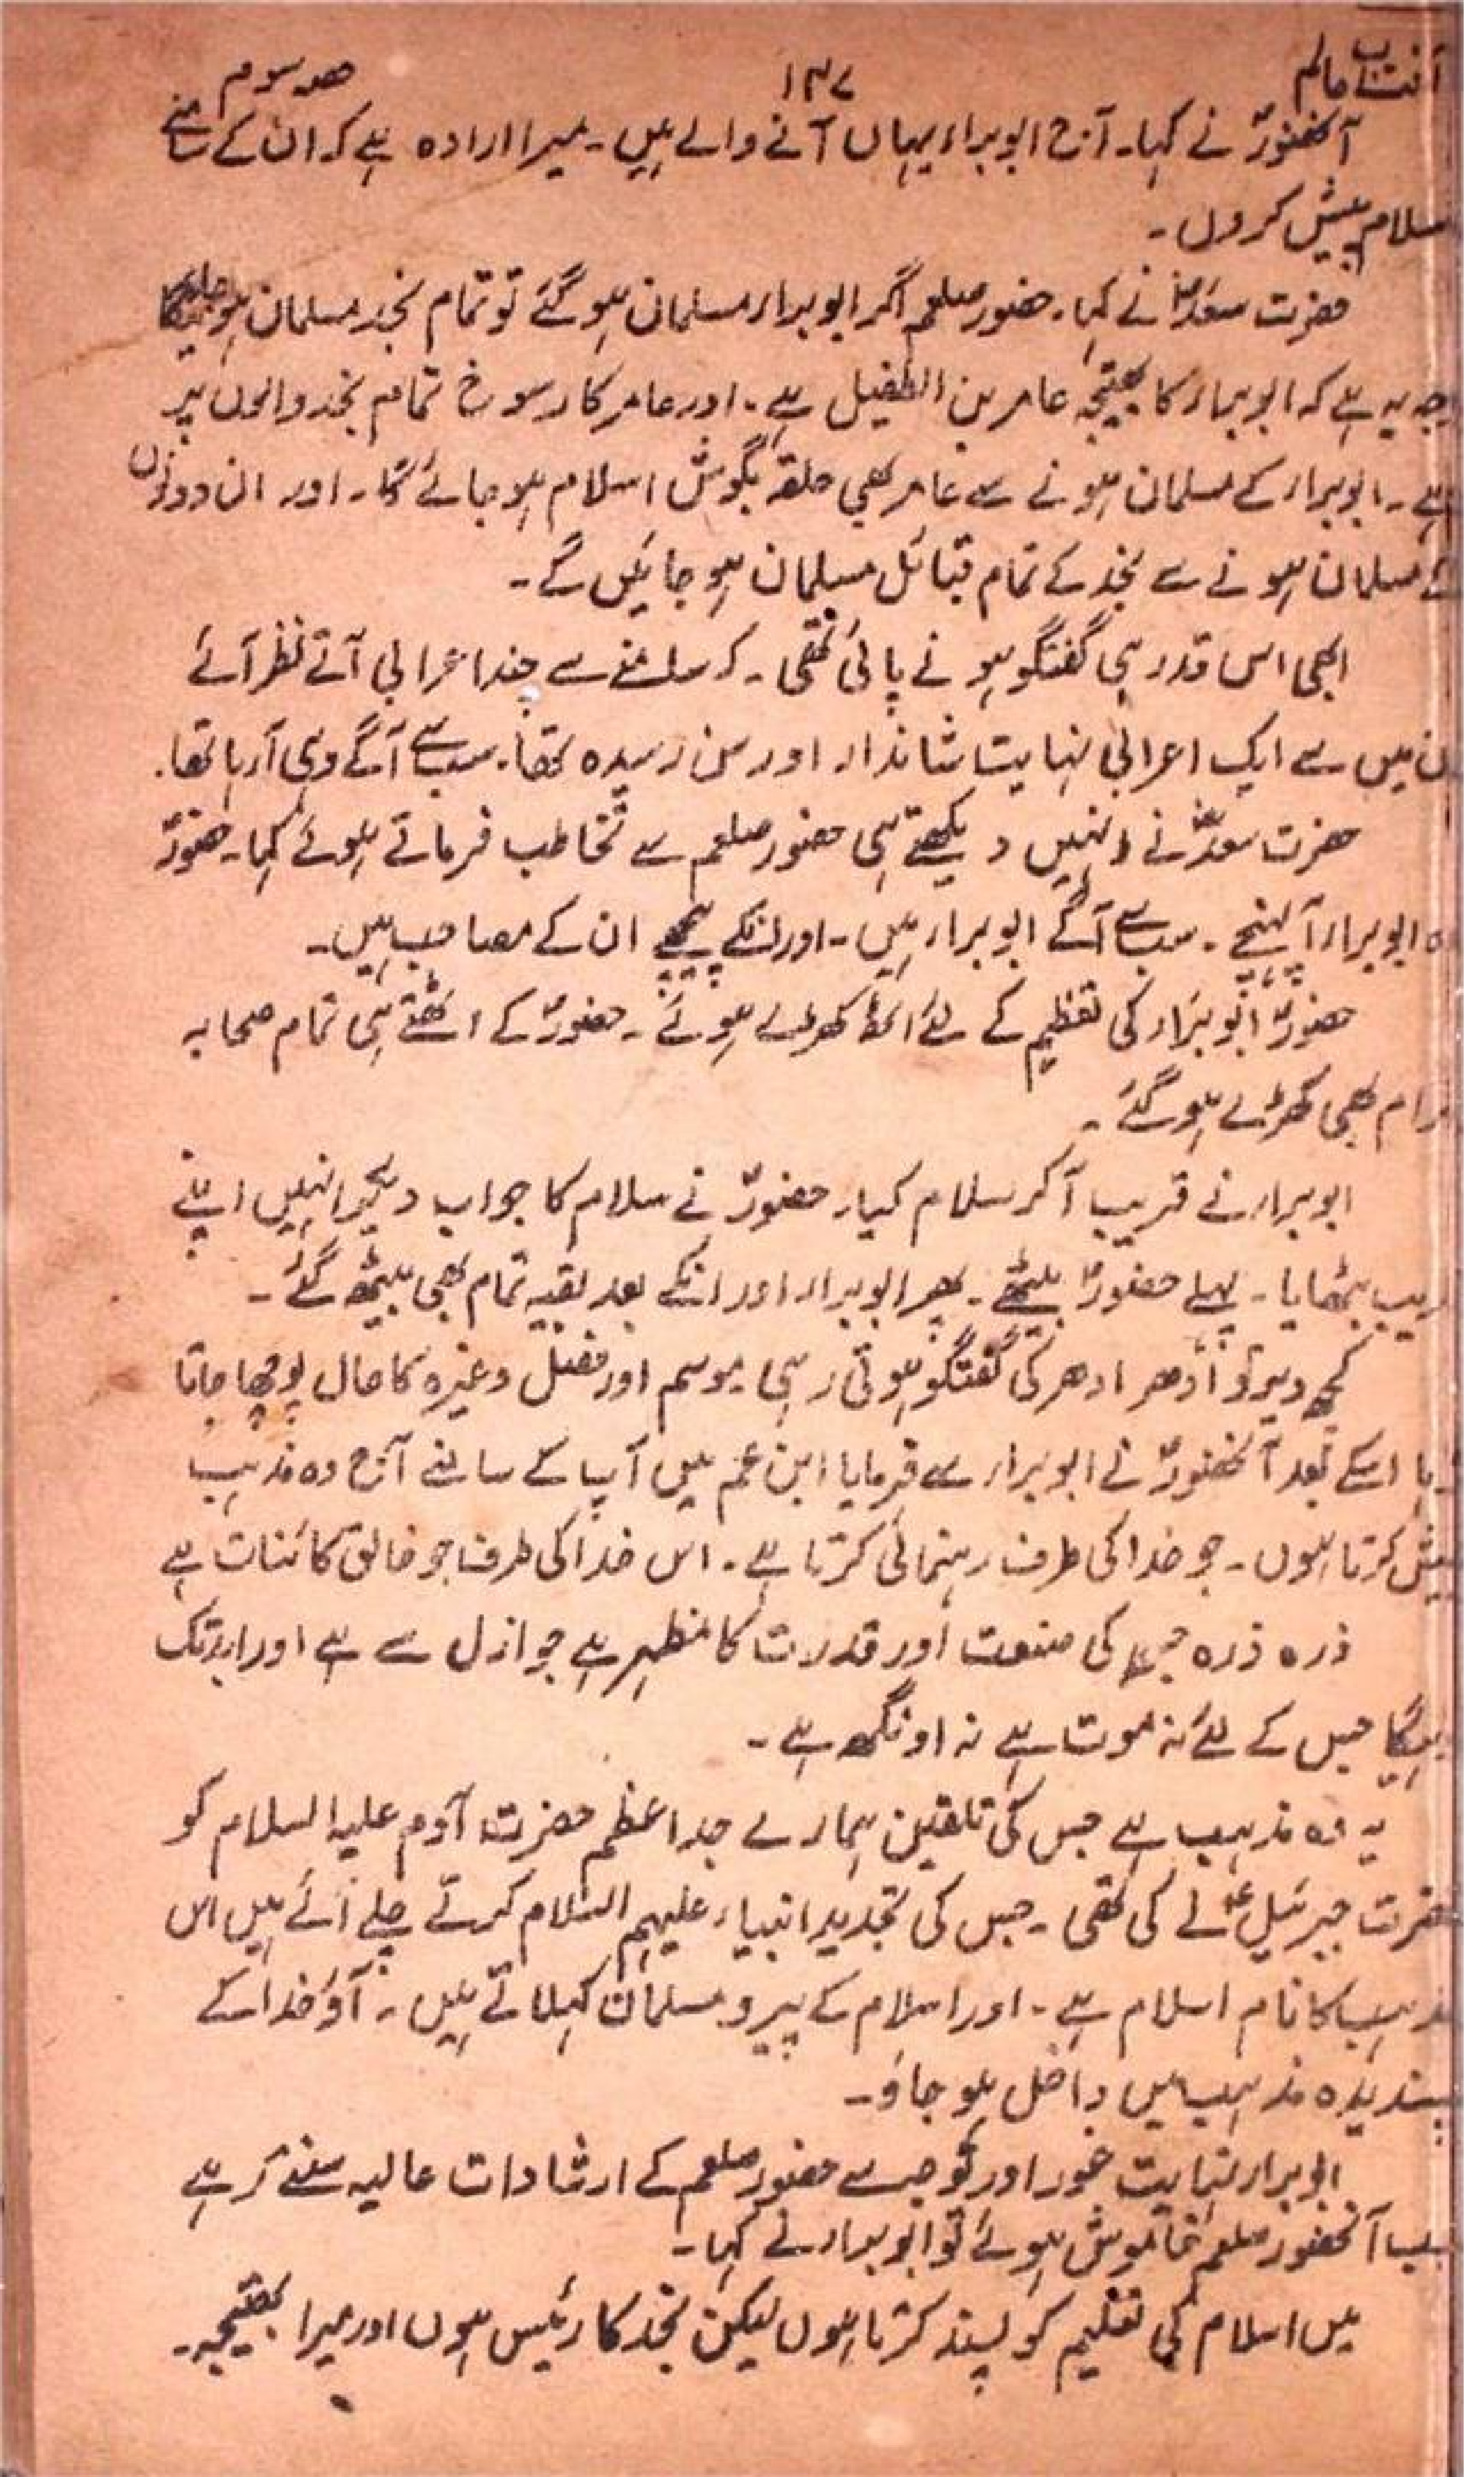 آفتاب عالم ۱۳۷ حصہ سوم
آنحضورؐ نے کہا۔ آج ابو براء یہاں آنے والے ہیں۔ میرا ارادہ ہے کہ ان کے سامنے
سلام پیش کروں۔
حضرت سعدؓ نے کہا۔ حضور صلعم اگر ابو براء مسلمان ہو گئے تو تمام نجد مسلمان ہو جائیگا
وجہ یہ ہے کہ ابو براء کا بھتیجہ عامر بن الطفیل ہے۔ اور عامر کا رسوخ تمام نجد والوں پر
ہے۔ ابو براء کے مسلمان ہونے سے عامر بھی حلقہ بگوش اسلام ہو جائے گا۔ اور ان دونوں
کے مسلمان ہونے سے نجد کے تمام قبائل مسلمان ہو جائیں گے۔
ابھی اس قدر ہی گفتگو ہونے پائی تھی۔ کہ سامنے سے چند اعرابی آتے نظر آئے
ن میں سے ایک اعرابی نہایت شاندار اور سن رسیدہ تھا۔ سب سے آگے وہی آرہا تھا۔
حضرت سعدؓ نے انہیں دیکھتے ہی حضور صلعم سے تخاطب فرماتے ہوئے کہا۔ حضورؐ
ہ ابو براء آ پہنچے۔ سب سے آگے ابو براء ہیں۔ اور انکے پیچھے ان کے مصاحب ہیں۔
حضورؐ ابو براء کی تعظیم کے لئے اٹھ کھڑے ہوئے۔ حضورؐ کے اٹھتے ہی تمام صحابہ
رام بھی کھڑے ہو گئے۔
ابو براء نے قریب آکر سلام کیا۔ حضورؐ نے سلام کا جواب دیکر انہیں اپنے
ریب بٹھایا۔ پہلے حضورؐ بیٹھے۔ پھر ابو براء اور انکے بعد بقیہ تمام بھی بیٹھ گئے۔
کچھ دیر تو اُدھر ادھر کی گفتگو ہوتی رہی۔ موسم اور فصل وغیرہ کا حال پوچھا جاتا
رہا اسکے بعد آنحضورؐ نے ابو براء سے فرمایا ابن عم میں آپ کے سامنے آج وہ مذہب
پیش کرتا ہوں۔ جو خدا کی طرف رہنمائی کرتا ہے۔ اس خدا کی طرف جو خالق کائنات ہے
ذرہ ذرہ جس کی صنعت اور قدرت کا مظہر ہے جو ازل سے ہے اور ابد تک
رہیگا جس کے لئے نہ موت ہے نہ اونگھ ہے۔
یہ وہ مذہب ہے جس کی تلقین ہمارے جد اعظم حضرت آدم علیہ السلام کو
حضرت جبرئیلؑ نے کی تھی۔ جس کی تجدید انبیاء علیہم السلام کرتے چلے آئے ہیں اس
مذہب کا نام اسلام ہے۔ اور اسلام کے پیرو مسلمان کہلاتے ہیں۔ آؤ خدا کے
پسندیدہ مذہب میں داخل ہو جاؤ۔
ابو براء نہایت غور اور توجہ سے حضور صلعم کے ارشادات عالیہ سنتے رہے
جب آنحضور صلعم خاموش ہوئے تو ابو براء نے کہا۔
میں اسلام کی تعلیم کو پسند کرتا ہوں لیکن نجد کا رئیس ہوں اور میرا بھتیجہ۔